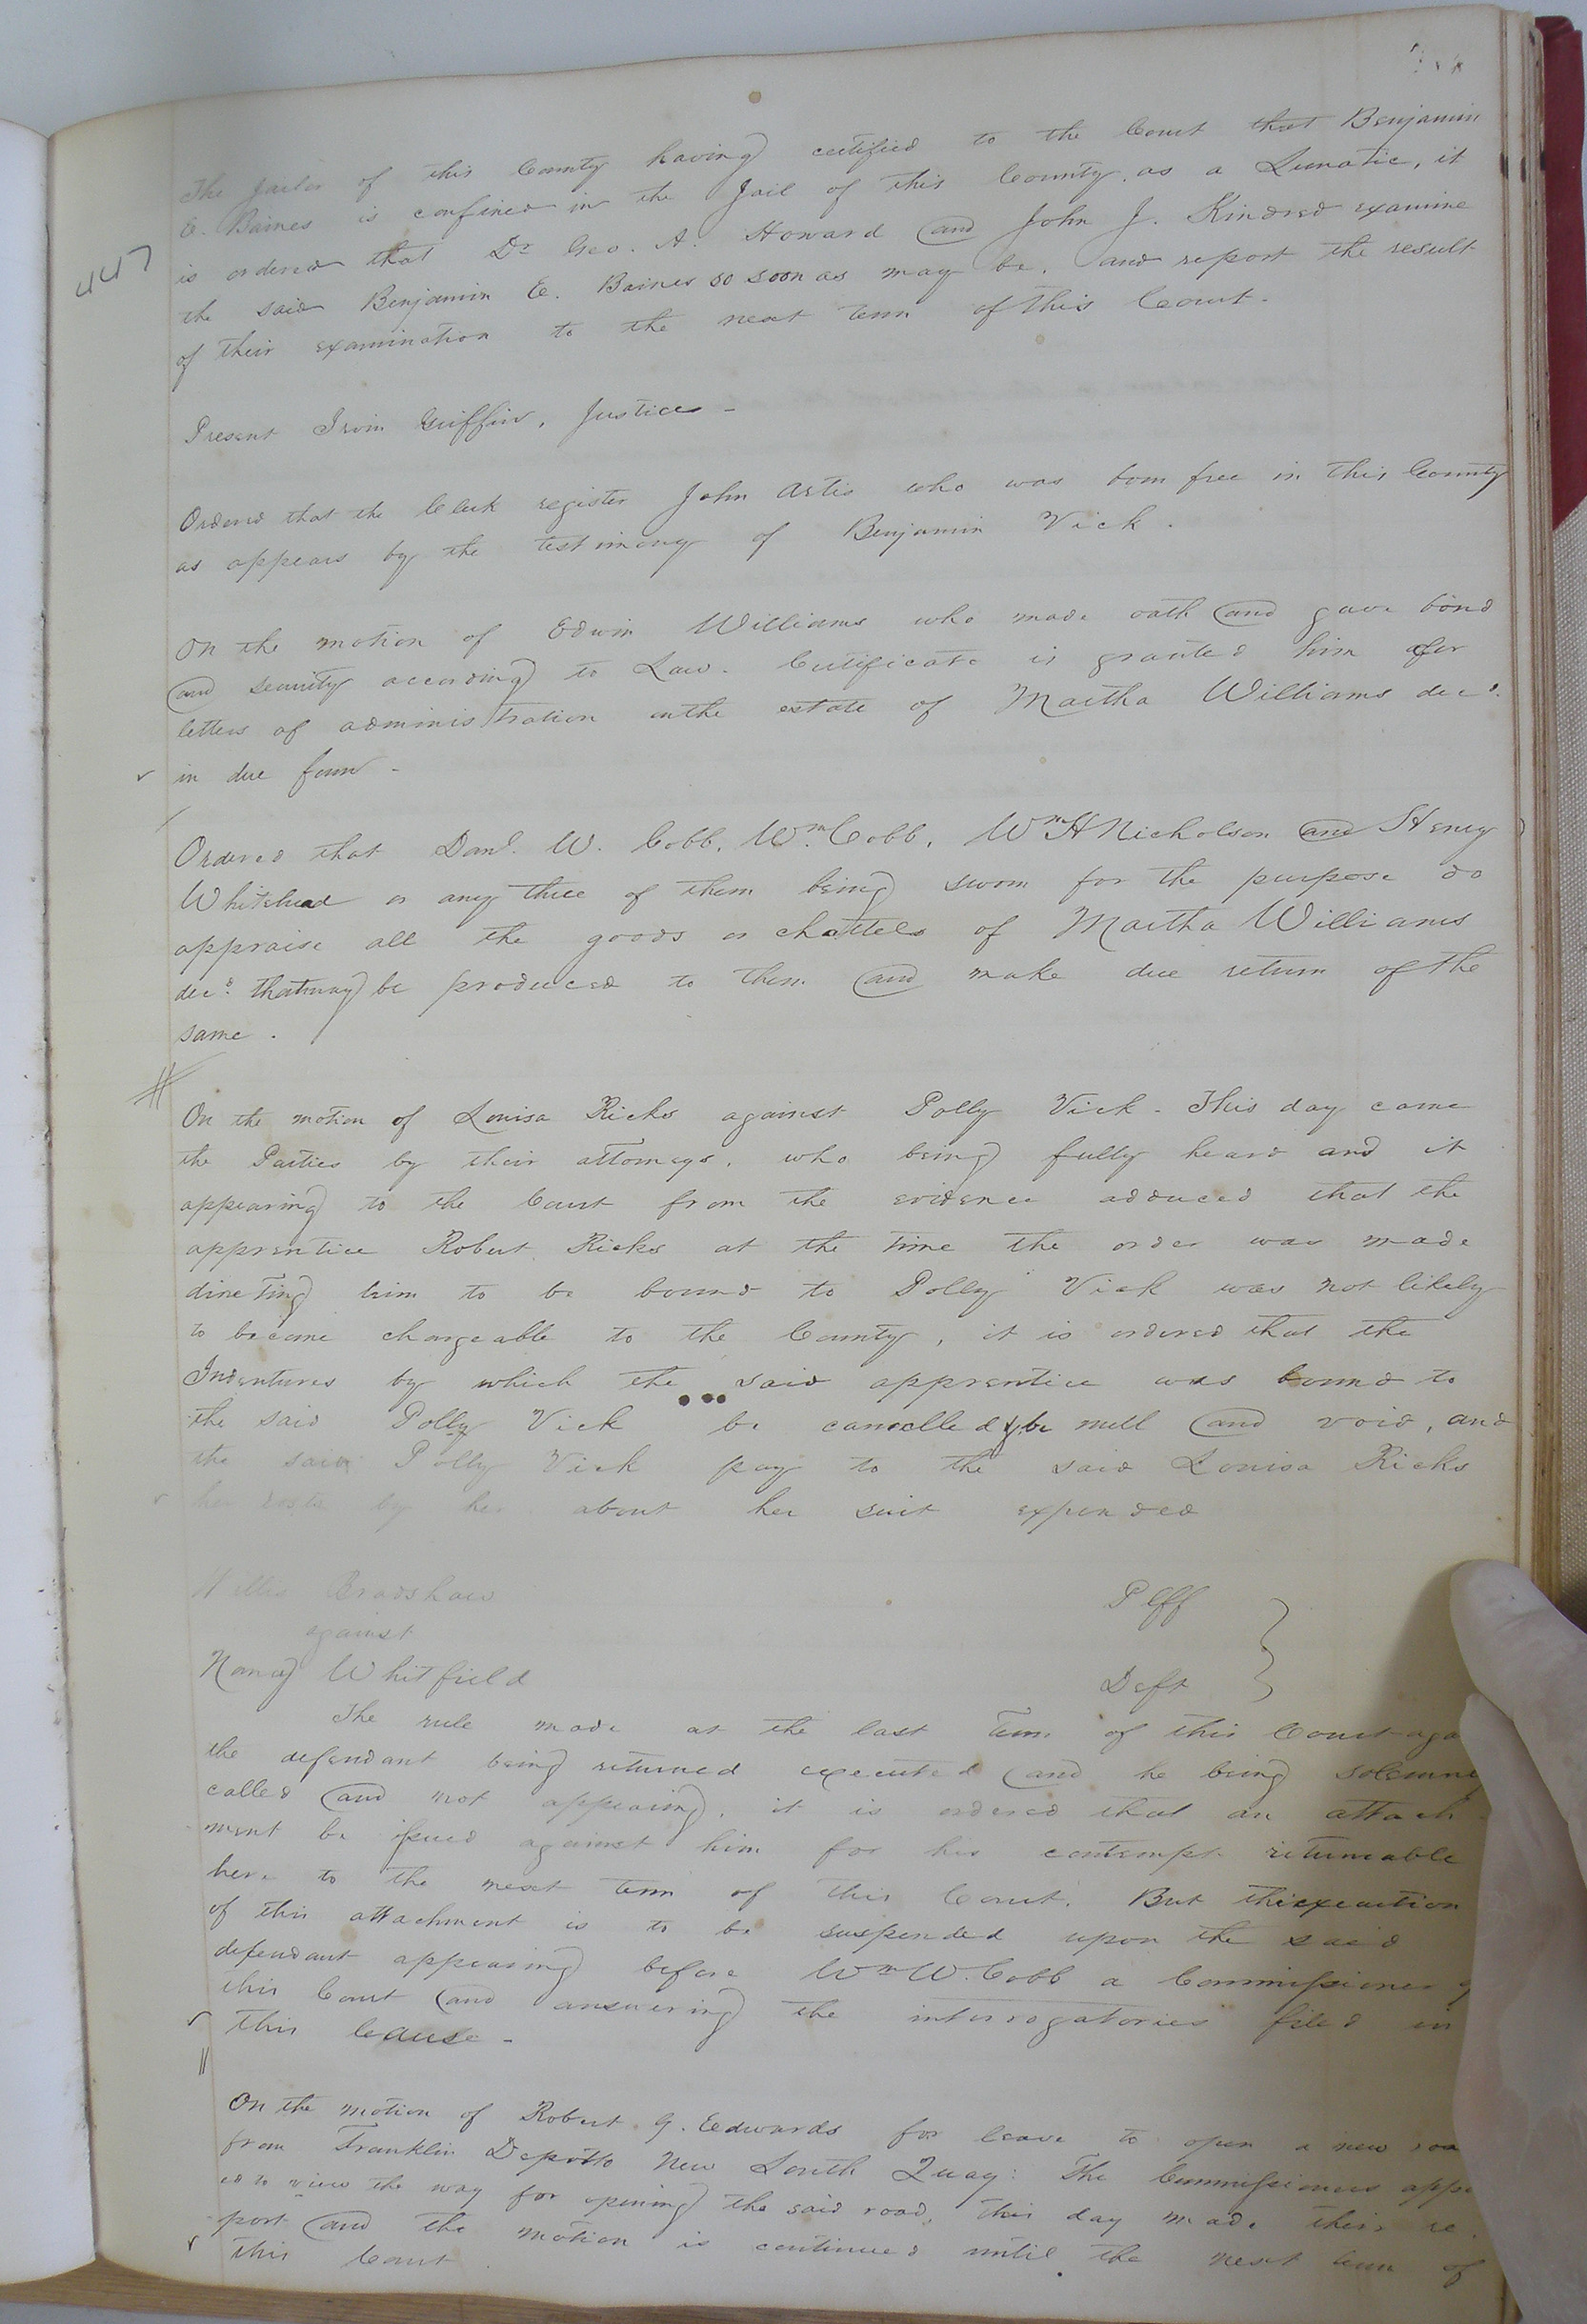 447
The Jailor of this County having certified to the Court that Benjamin
E. Baines is confined in the Jail of this County, as a Lunatic, it
is ordered that Dr Geo. A. Howard and John J. Kindred examine
the said Benjamin E. Baines so soon as may be, and report the result
of their examination to the next term of this Court.
Present Irvin Griffin, Justice -
Ordered that the Clerk register John Artis who was born free in this County
as appears by the testimony of Benjamin Vick.
On the motion of Edwin Williams who made oath and gave bond
and security according to Law. Certificate is granted him for
letters of administration on the estate of Martha Williams decd.
in due form -
Ordered that Danl. W. Cobb, Wm. Cobb, Wm H Nicholson and Henry
Whitehead or any three of them being sworn for the purpose do
appraise all the goods or chattels of Martha Williams
decd. that may be produced to them and make due return of the
same.
On the motion of Louisa Ricks against Polly Vick. This day came
the Parties by their attorneys, who being fully heard and it
appearing to the Court from the evidence adduced that the
apprentice Robert Ricks at the time the order was made
directing him to be bound to Polly Vick was not likely
to become chargeable to the County, it is ordered that the
Indentures by which the said apprentice was bound to
the said Polly Vick be cancelled & be null and void, and
the said Polly Vick pay to the said Louisa Ricks
her costs by her about her suit expended
Willis Bradshaw Plff
against
Nancy Whitfield Deft
The rule made at the last Term of this Court aga
the defendant being returned executed and he being solemnl
called and not appearing, it is ordered that an attach
ment be issued against him for his contempt returnable
here to the next term of this Court. But the execution
of this attachment is to be suspended upon the said
defendant appearing before Wm W. Cobb a Commissioner
this Court and answering the interrogatories filed in
this Cause -
On the motion of Robert G. Edwards for leave to open a new roa
from Franklin Depot to New South Quay: The Commissioners appo
ed to view the way for opening the said road, this day made their re
port and the motion is continued until the next term of
this Court